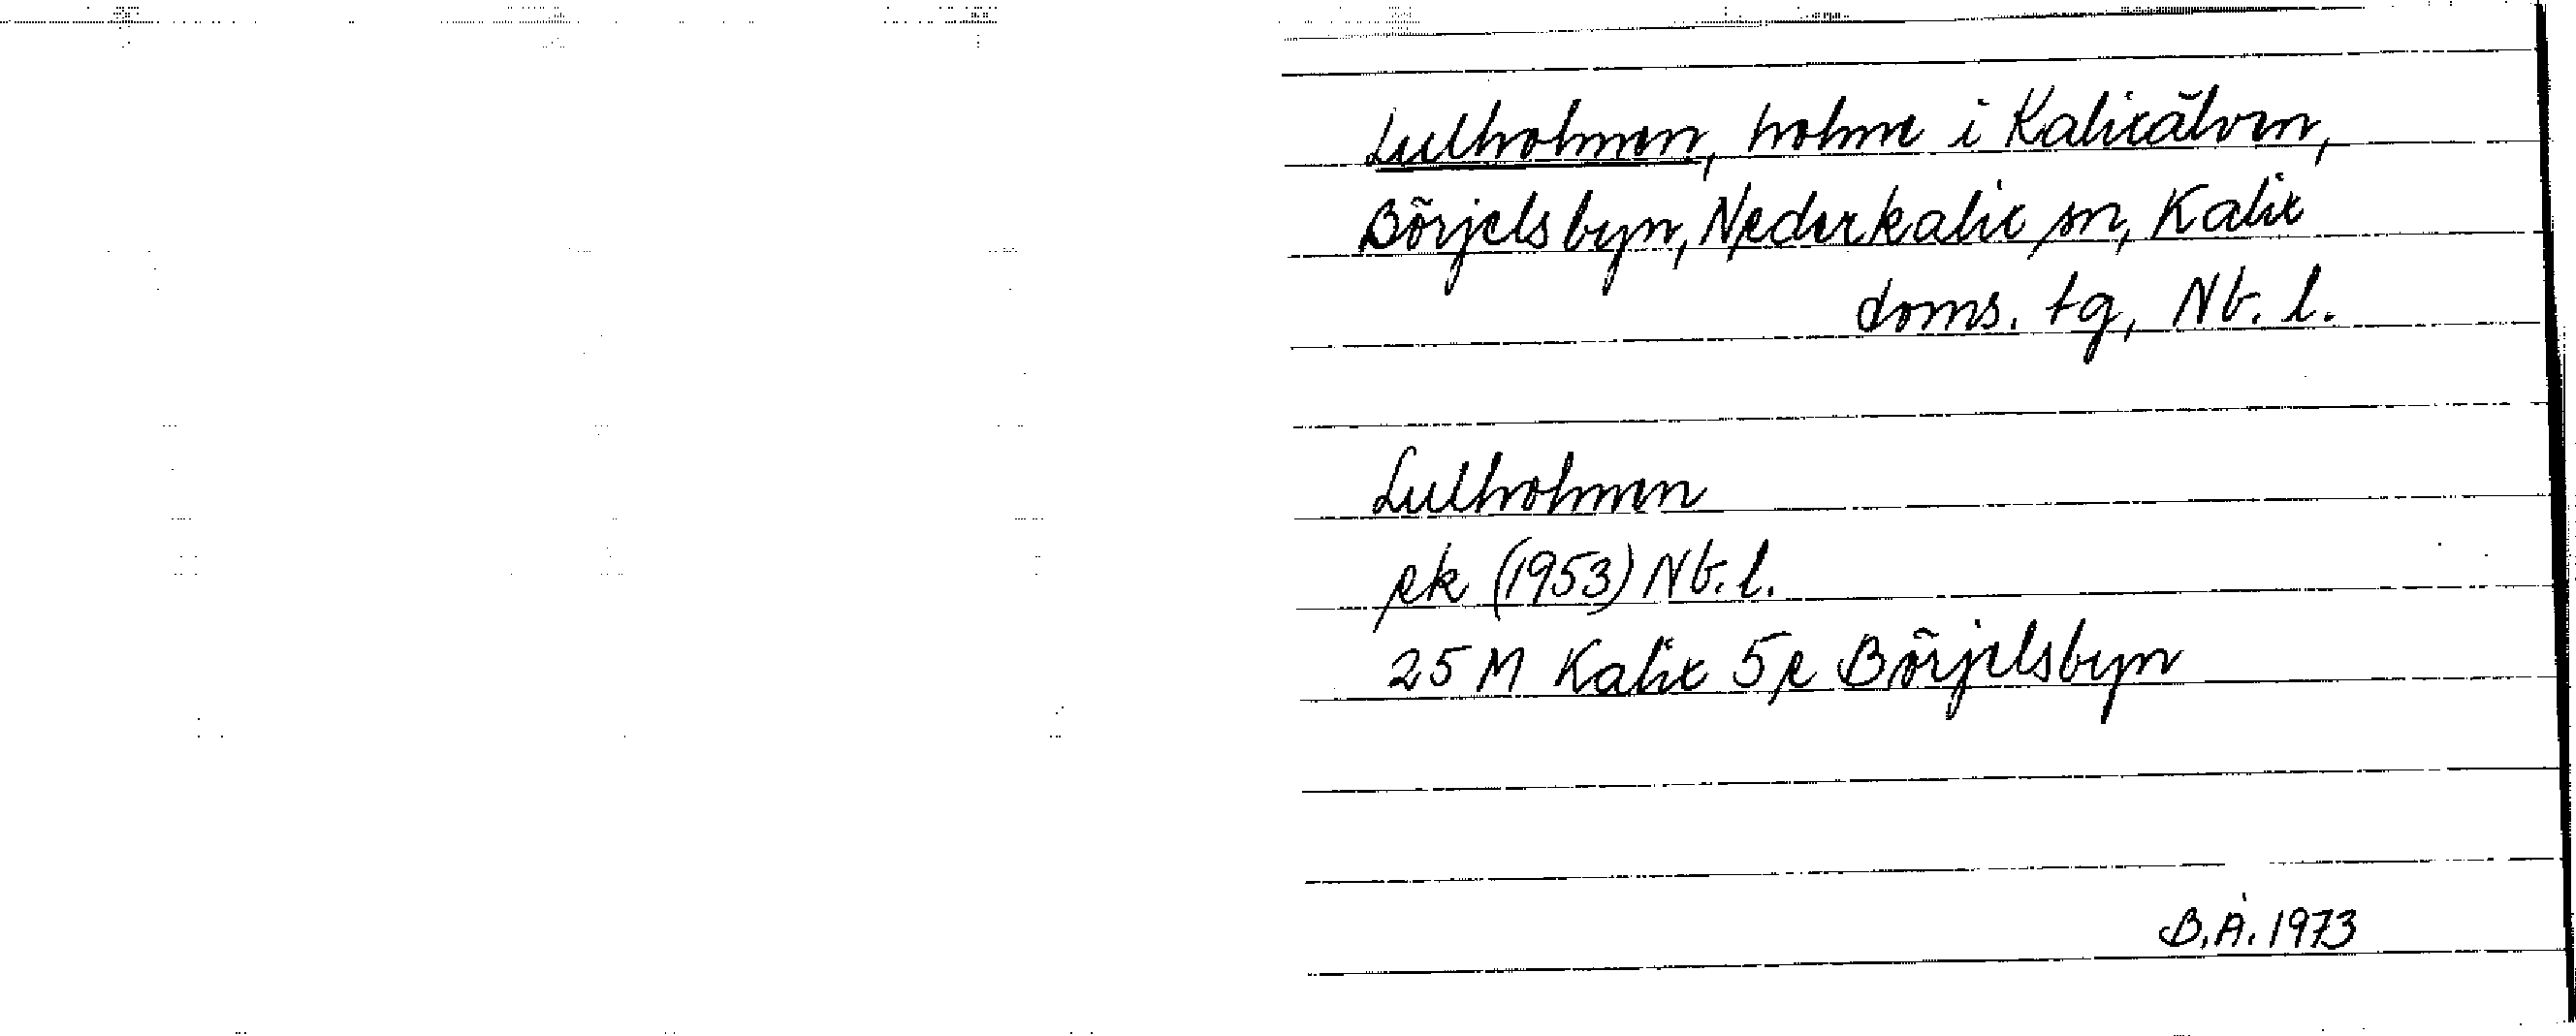 Lulholmen, holme i Kalixälven,
Börjelsbyn, Nederkalix sn, Kalix
doms. tg, Nb. l.
Lulholmen
ek (1953) Nb. l.
25 M Kalix 5 e Börjelsbyn
B.Å. 1973